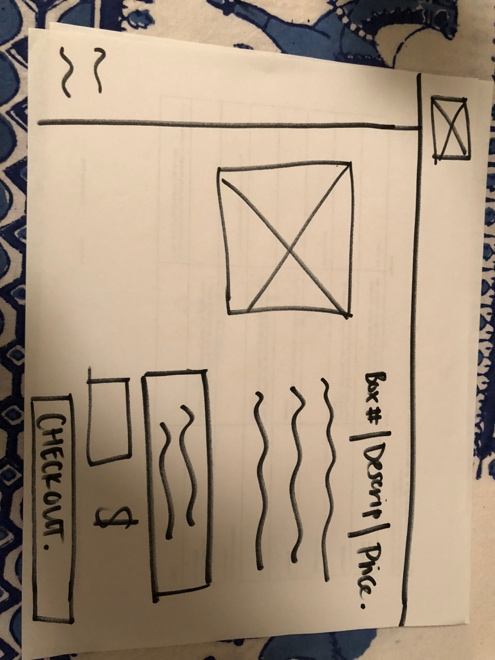 Box# | Descrip | Price.
$
CHECKOUT.